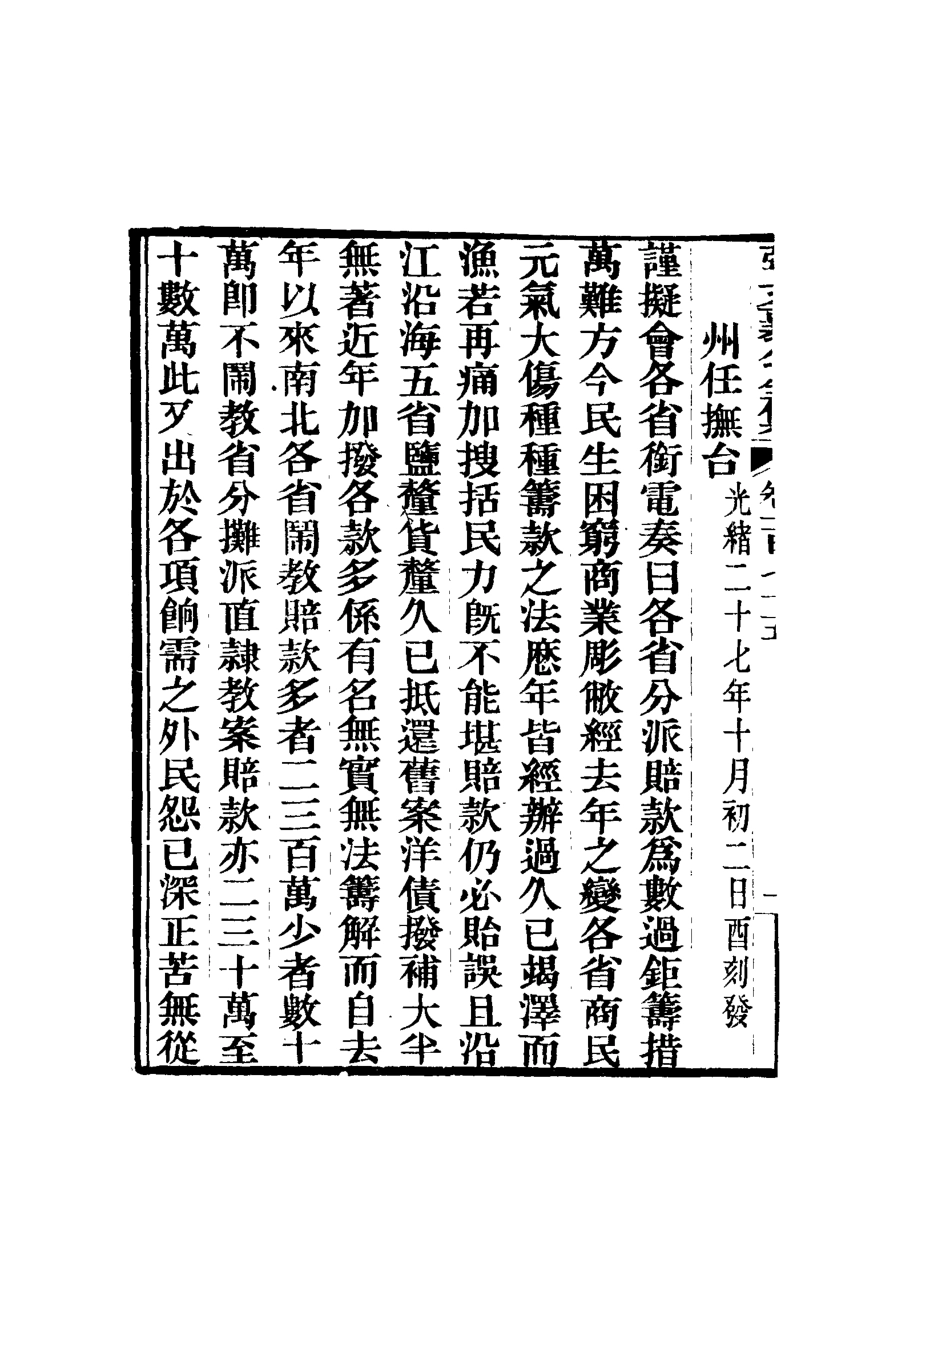 州任撫台光緒二十七年十月初二日酉刻發
謹擬會各省銜電奏曰各省分派賠款爲數過鉅籌措
萬難方今民生困窮商業彫敝經去年之變各省商民
元氣大傷種種籌款之法歷年皆經辦過久已竭澤而
漁若再痛加搜括民力旣不能堪賠款仍必貽誤且沿
江沿海五省鹽釐貨釐久已抵還舊案洋債撥補大半
無著近年加撥各款多係有名無實無法籌解而自去
年以來南北各省鬧教賠款多者二三百萬少者數十
萬卽不鬧教省分攤派直隸教案賠款亦二三十萬至
十數萬此又出於各項餉需之外民怨已深正苦無從